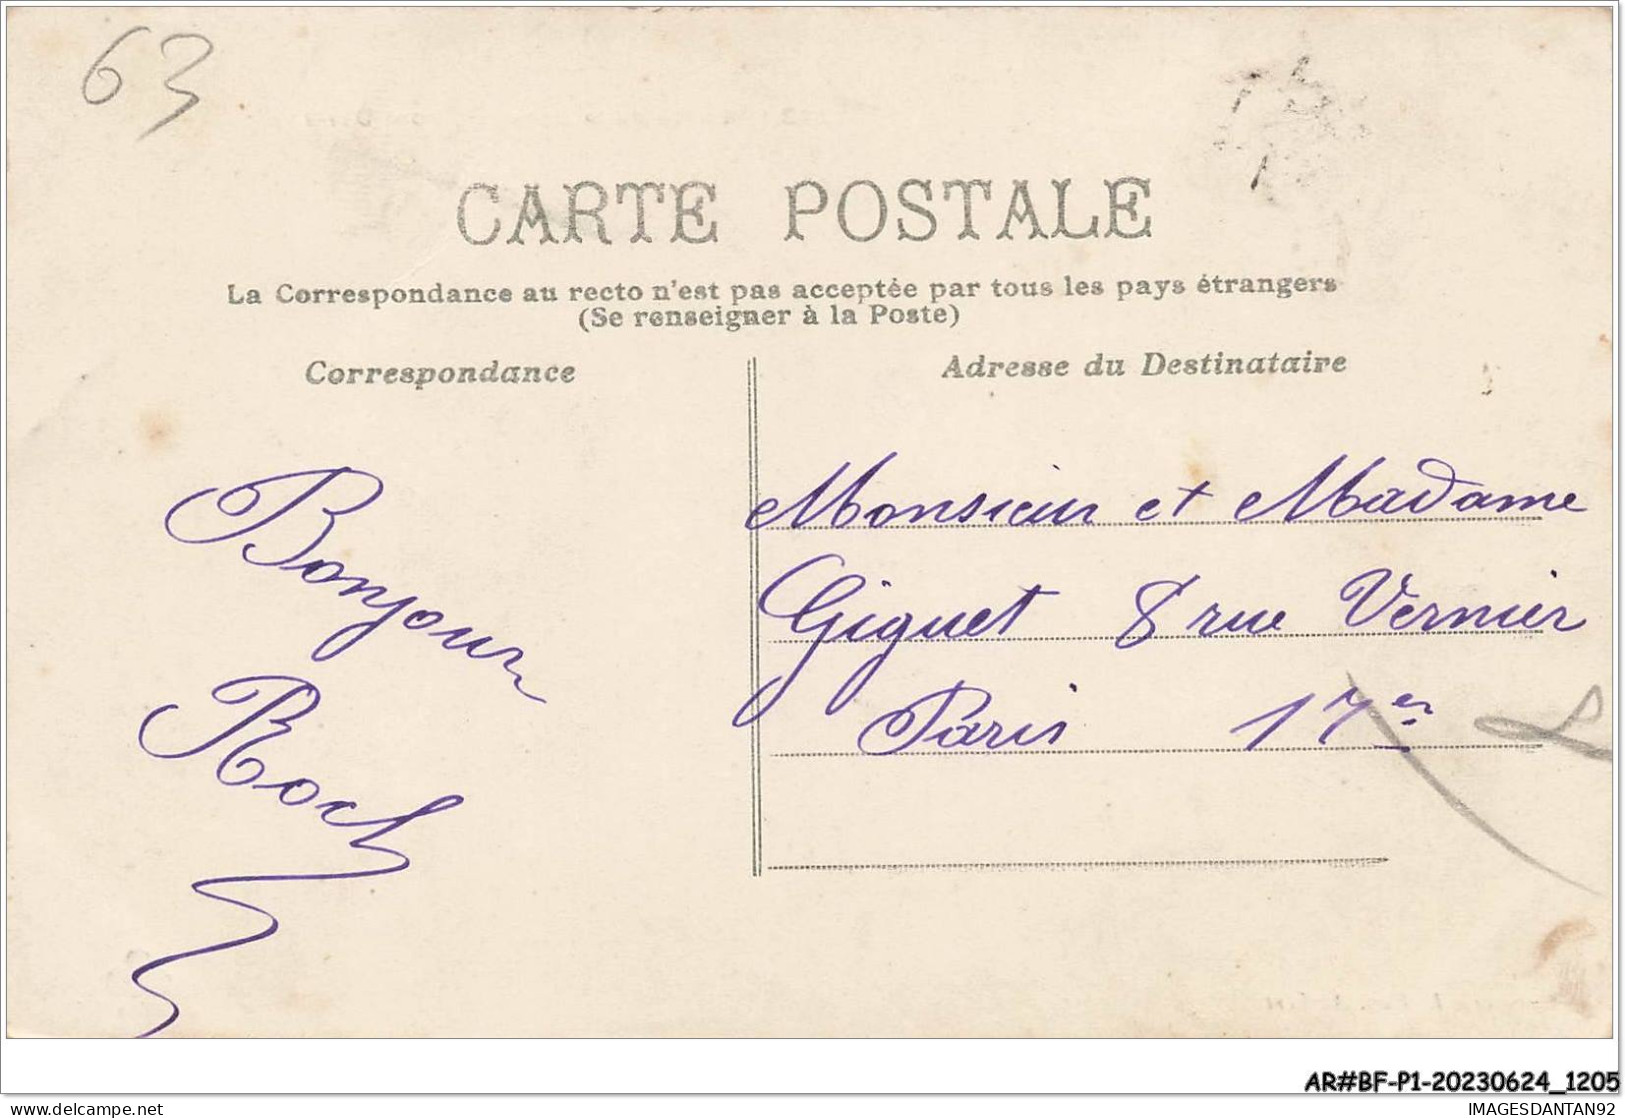 63
CARTE POSTALE
La Correspondance au recto n'est pas acceptée par tous les pays étrangers
(Se renseigner à la Poste)
Correspondance
Adresse du Destinataire
Bonjour
Roch
Monsieur et Madame
Giguet 8 rue Vernier
Paris 17er
AR#BF-P1-20230624_1205
delcampe.net
IMAGESDANTAN92